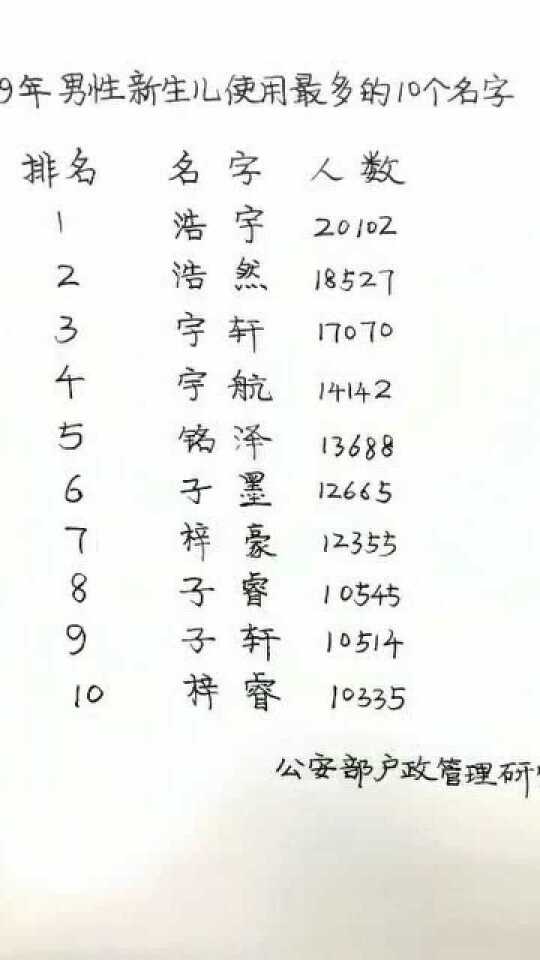 9年男性新生儿使用最多的10个名字
排名 名字 人数
1 浩宇 20102
2 浩然 18527
3 宇轩 17070
4 宇航 14142
5 铭泽 13688
6 子墨 12665
7 梓豪 12355
8 子睿 10545
9 子轩 10514
10 梓睿 10335
公安部户政管理研